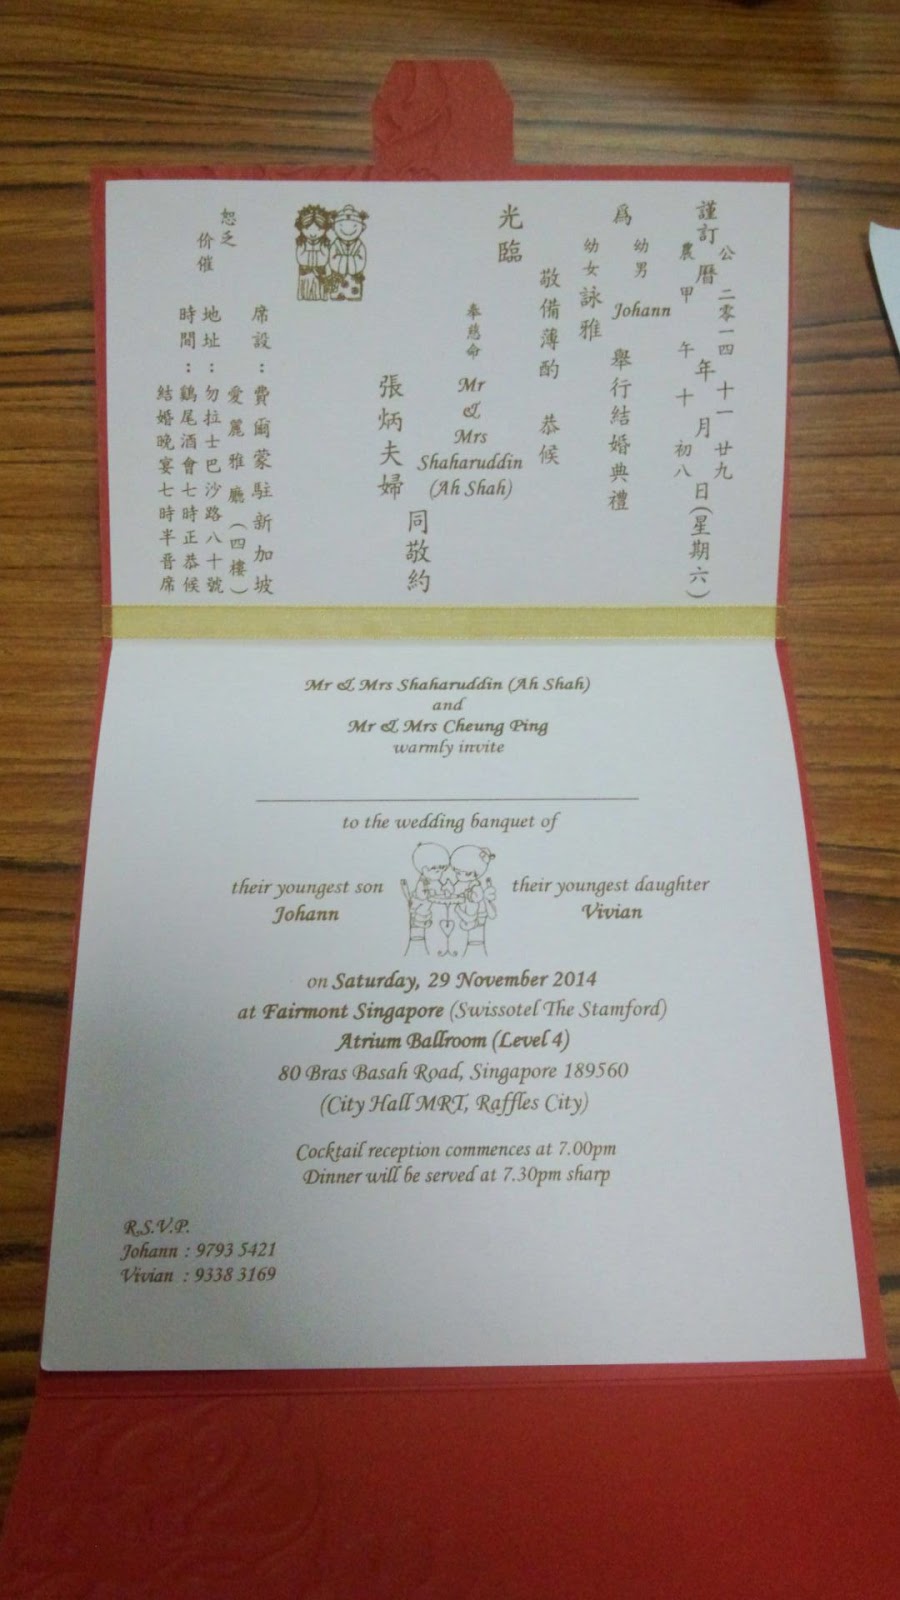 謹訂
公曆二零一四年十一月廿九日(星期六)
農曆甲午年十月初八日
爲
幼男 Johann
幼女 詠雅
舉行結婚典禮
敬備薄酌 恭候
光臨
奉慈命
Mr
&
Mrs
Shaharuddin
(Ah Shah)
張炳夫婦
同敬約
席設：費爾蒙駐新加坡
愛麗雅廳(四樓)
地址：勿拉士巴沙路八十號
時間：鷄尾酒會七時正恭候
結婚晚宴七時半晉席
恕乏
价催
Mr & Mrs Shaharuddin (Ah Shah)
and
Mr & Mrs Cheung Ping
warmly invite
to the wedding banquet of
their youngest son
Johann
their youngest daughter
Vivian
on Saturday, 29 November 2014
at Fairmont Singapore (Swissotel The Stamford)
Atrium Ballroom (Level 4)
80 Bras Basah Road, Singapore 189560
(City Hall MRT, Raffles City)
Cocktail reception commences at 7.00pm
Dinner will be served at 7.30pm sharp
R.S.V.P.
Johann : 9793 5421
Vivian : 9338 3169